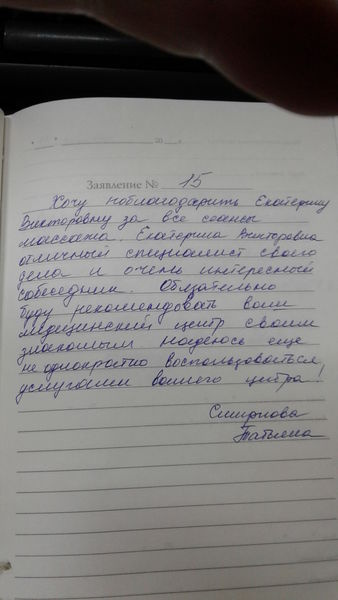 20
Заявление № 15
Хочу поблагодарить Екатерину
Викторовну за все сеансы
массажа. Екатерина Викторовна
отличный специалист своего
дела и очень интересный
собеседник. Обязательно
буду рекомендовать ваш
медицинский центр своим
знакомым. Надеюсь еще
не однократно воспользоваться
услугами вашего центра!
Смирнова
Татьяна